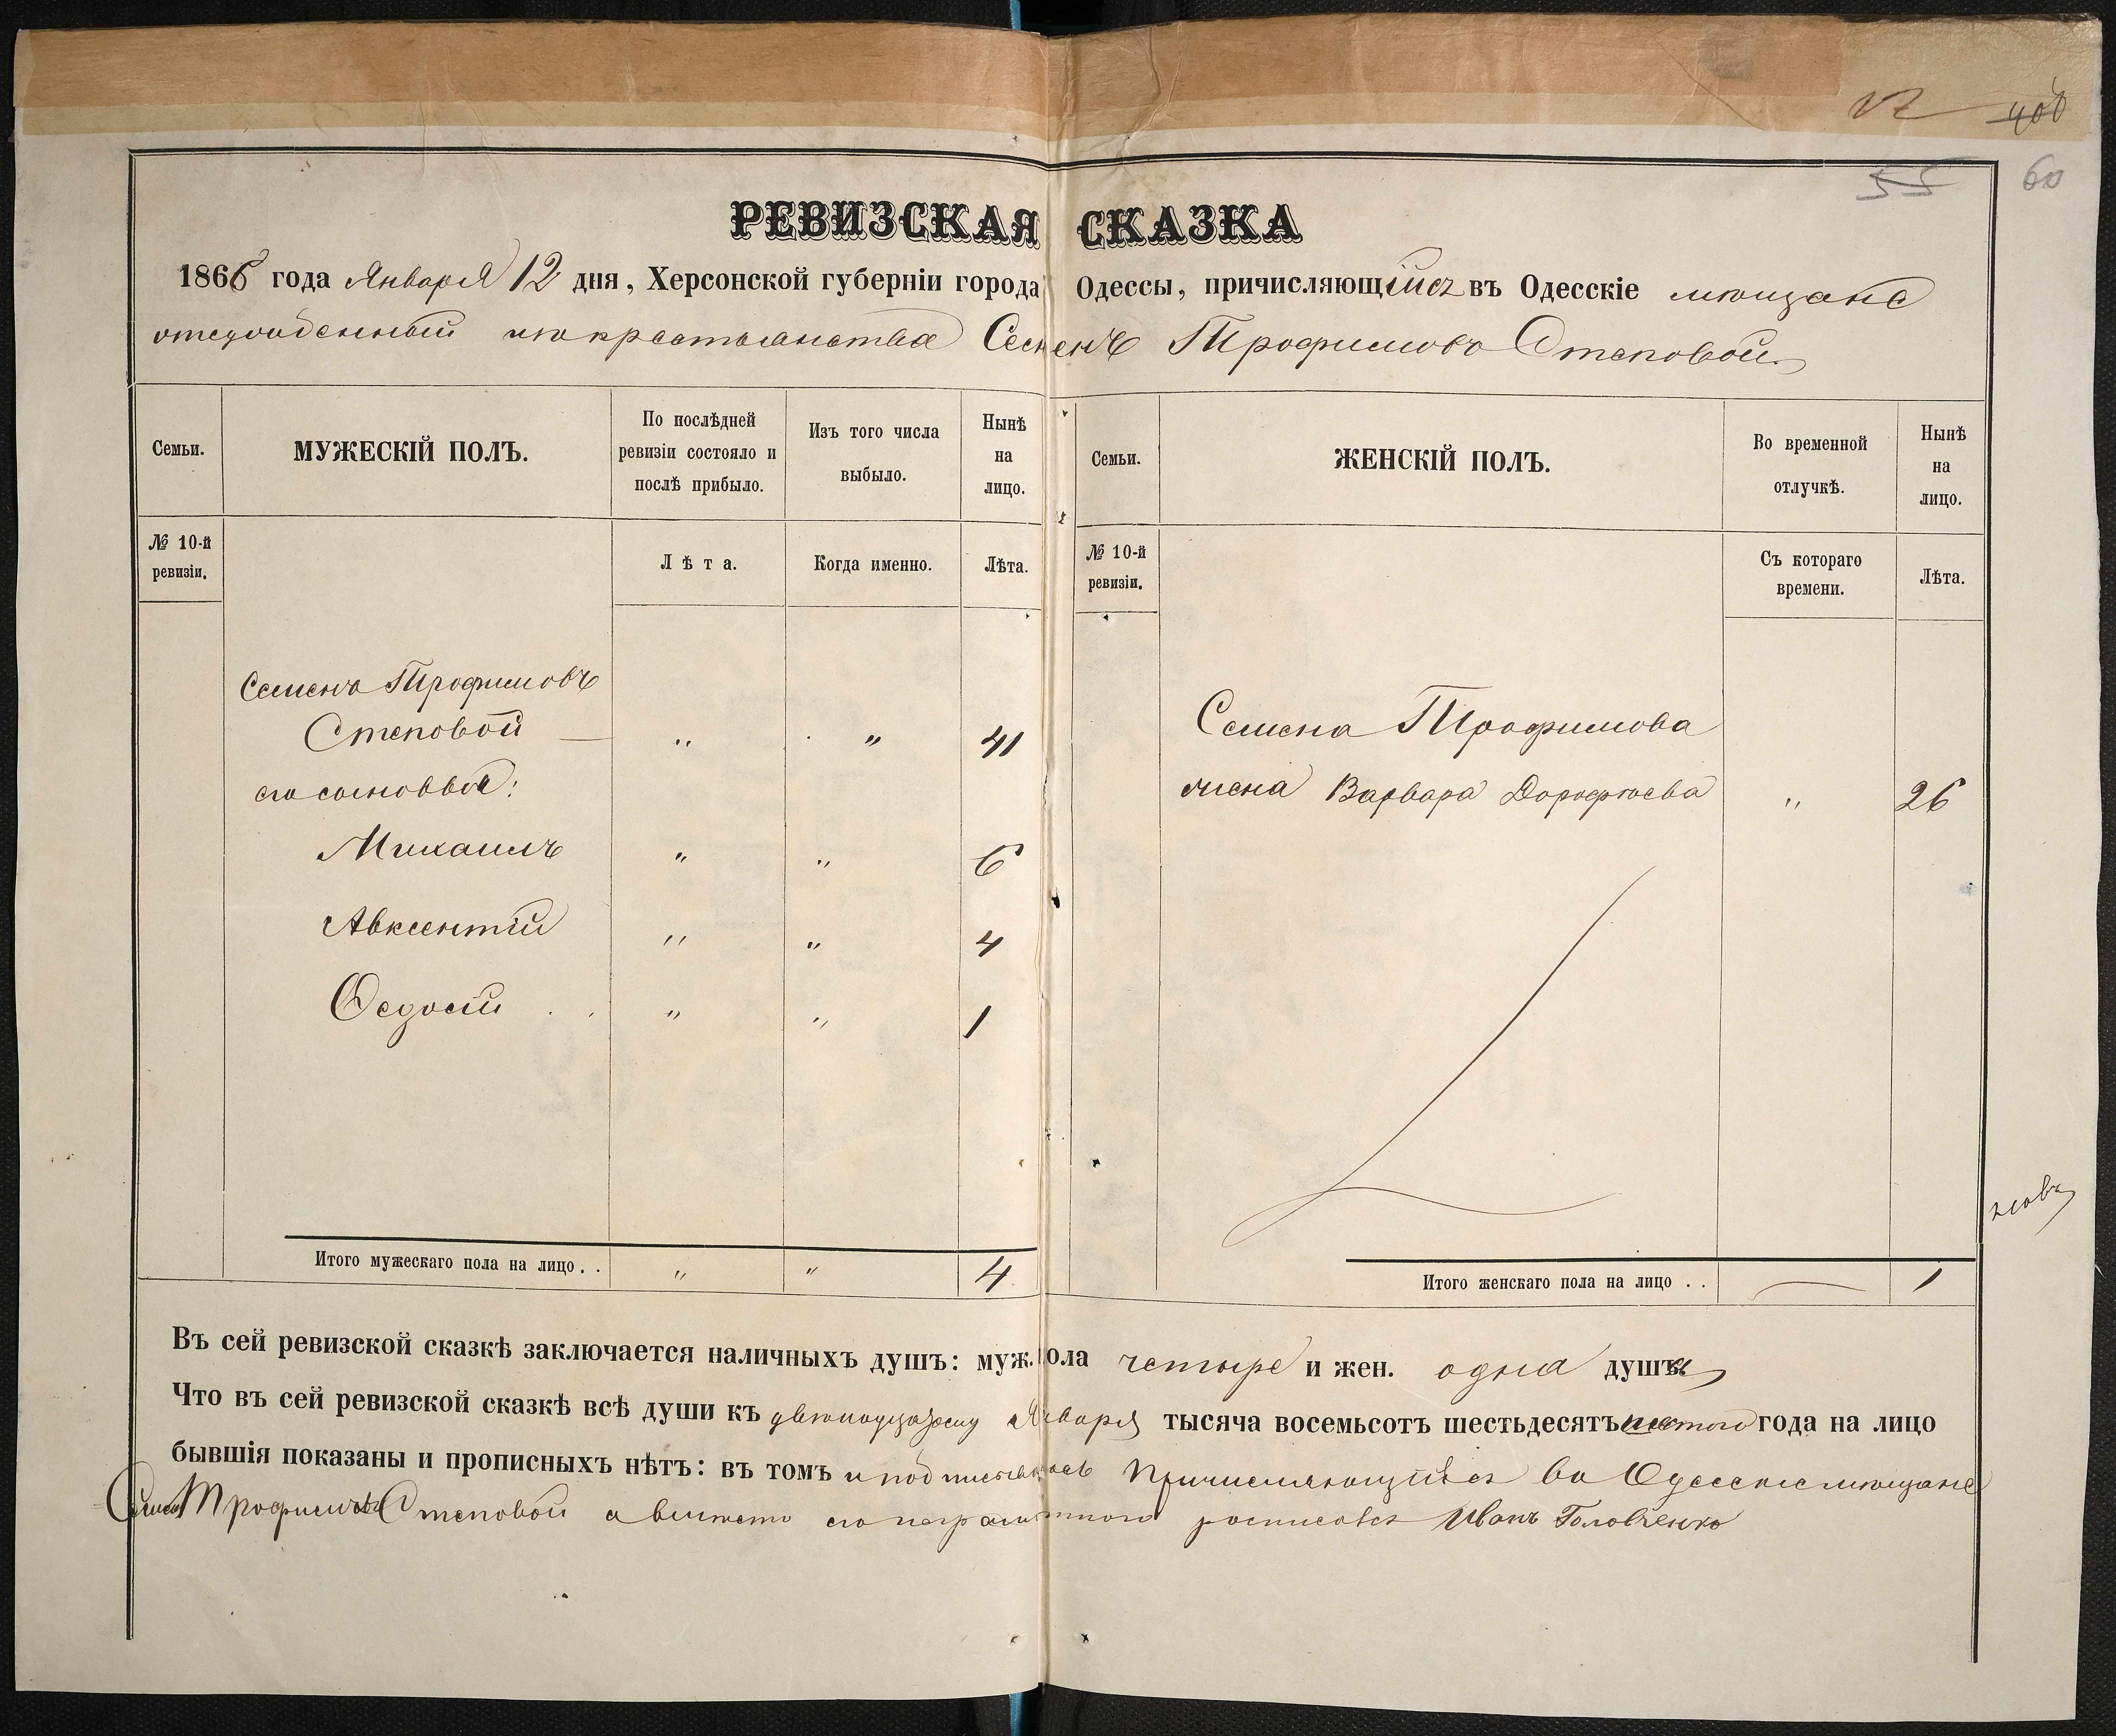 406
55 60
РЕВИЗСКАЯ СКАЗКА
1866 года Января 12 дня, Херсонской губернiи города Одессы, причисляющiйся въ Одесскiе мѣщане
изъ крестьянства Семенъ Трофимовъ Степовой
Семьи. МУЖЕСКIЙ ПОЛЪ. По послѣдней ревизiи состояло и послѣ прибыло. Изъ того числа выбыло. Нынѣ на лицо. Семьи. ЖЕНСКIЙ ПОЛЪ. Во временной отлучкѣ. Нынѣ на лицо.
№ 10-й ревизiи. Лѣта. Когда именно. Лѣта. № 10-й ревизiи. Съ котораго времени. Лѣта.
Семенъ Трофимовъ
Степовой — " " 41
его сыновья:
Михаилъ " " 6
Авксентiй " " 4
Ѳедосiй . . " " 1
Семена Трофимова
жена Варвара Дорофѣева " 26
Итого мужескаго пола на лицо . . " " 4
Итого женскаго пола на лицо . . — 1
Въ сей ревизской сказкѣ заключается наличныхъ душъ: муж. пола четыре и жен. одна душа
Что въ сей ревизской сказкѣ всѣ души къ двѣнадцатому Января тысяча восемьсотъ шестьдесятъ шестого года на лицо
бывшiя показаны и прописныхъ нѣтъ: въ томъ и подписываюсь Причисляющiйся въ Одесскiе мѣщане
Семенъ Трофимовъ Степовой а вмѣсто его неграмотного росписался Иванъ Головченко